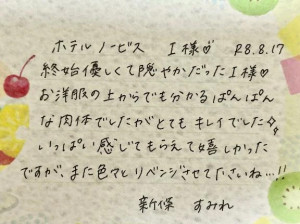 ホテルノービス　I様♡　R8.8.17
終始優しくて穏やかだったI様♡
お洋服の上からでも分かるぱんぱん
な肉体でしたがとてもキレイでした✨
いっぱい感じてもらえて嬉しかった
ですが、また色々とリベンジさせて下さいね…!!
新保　すみれ